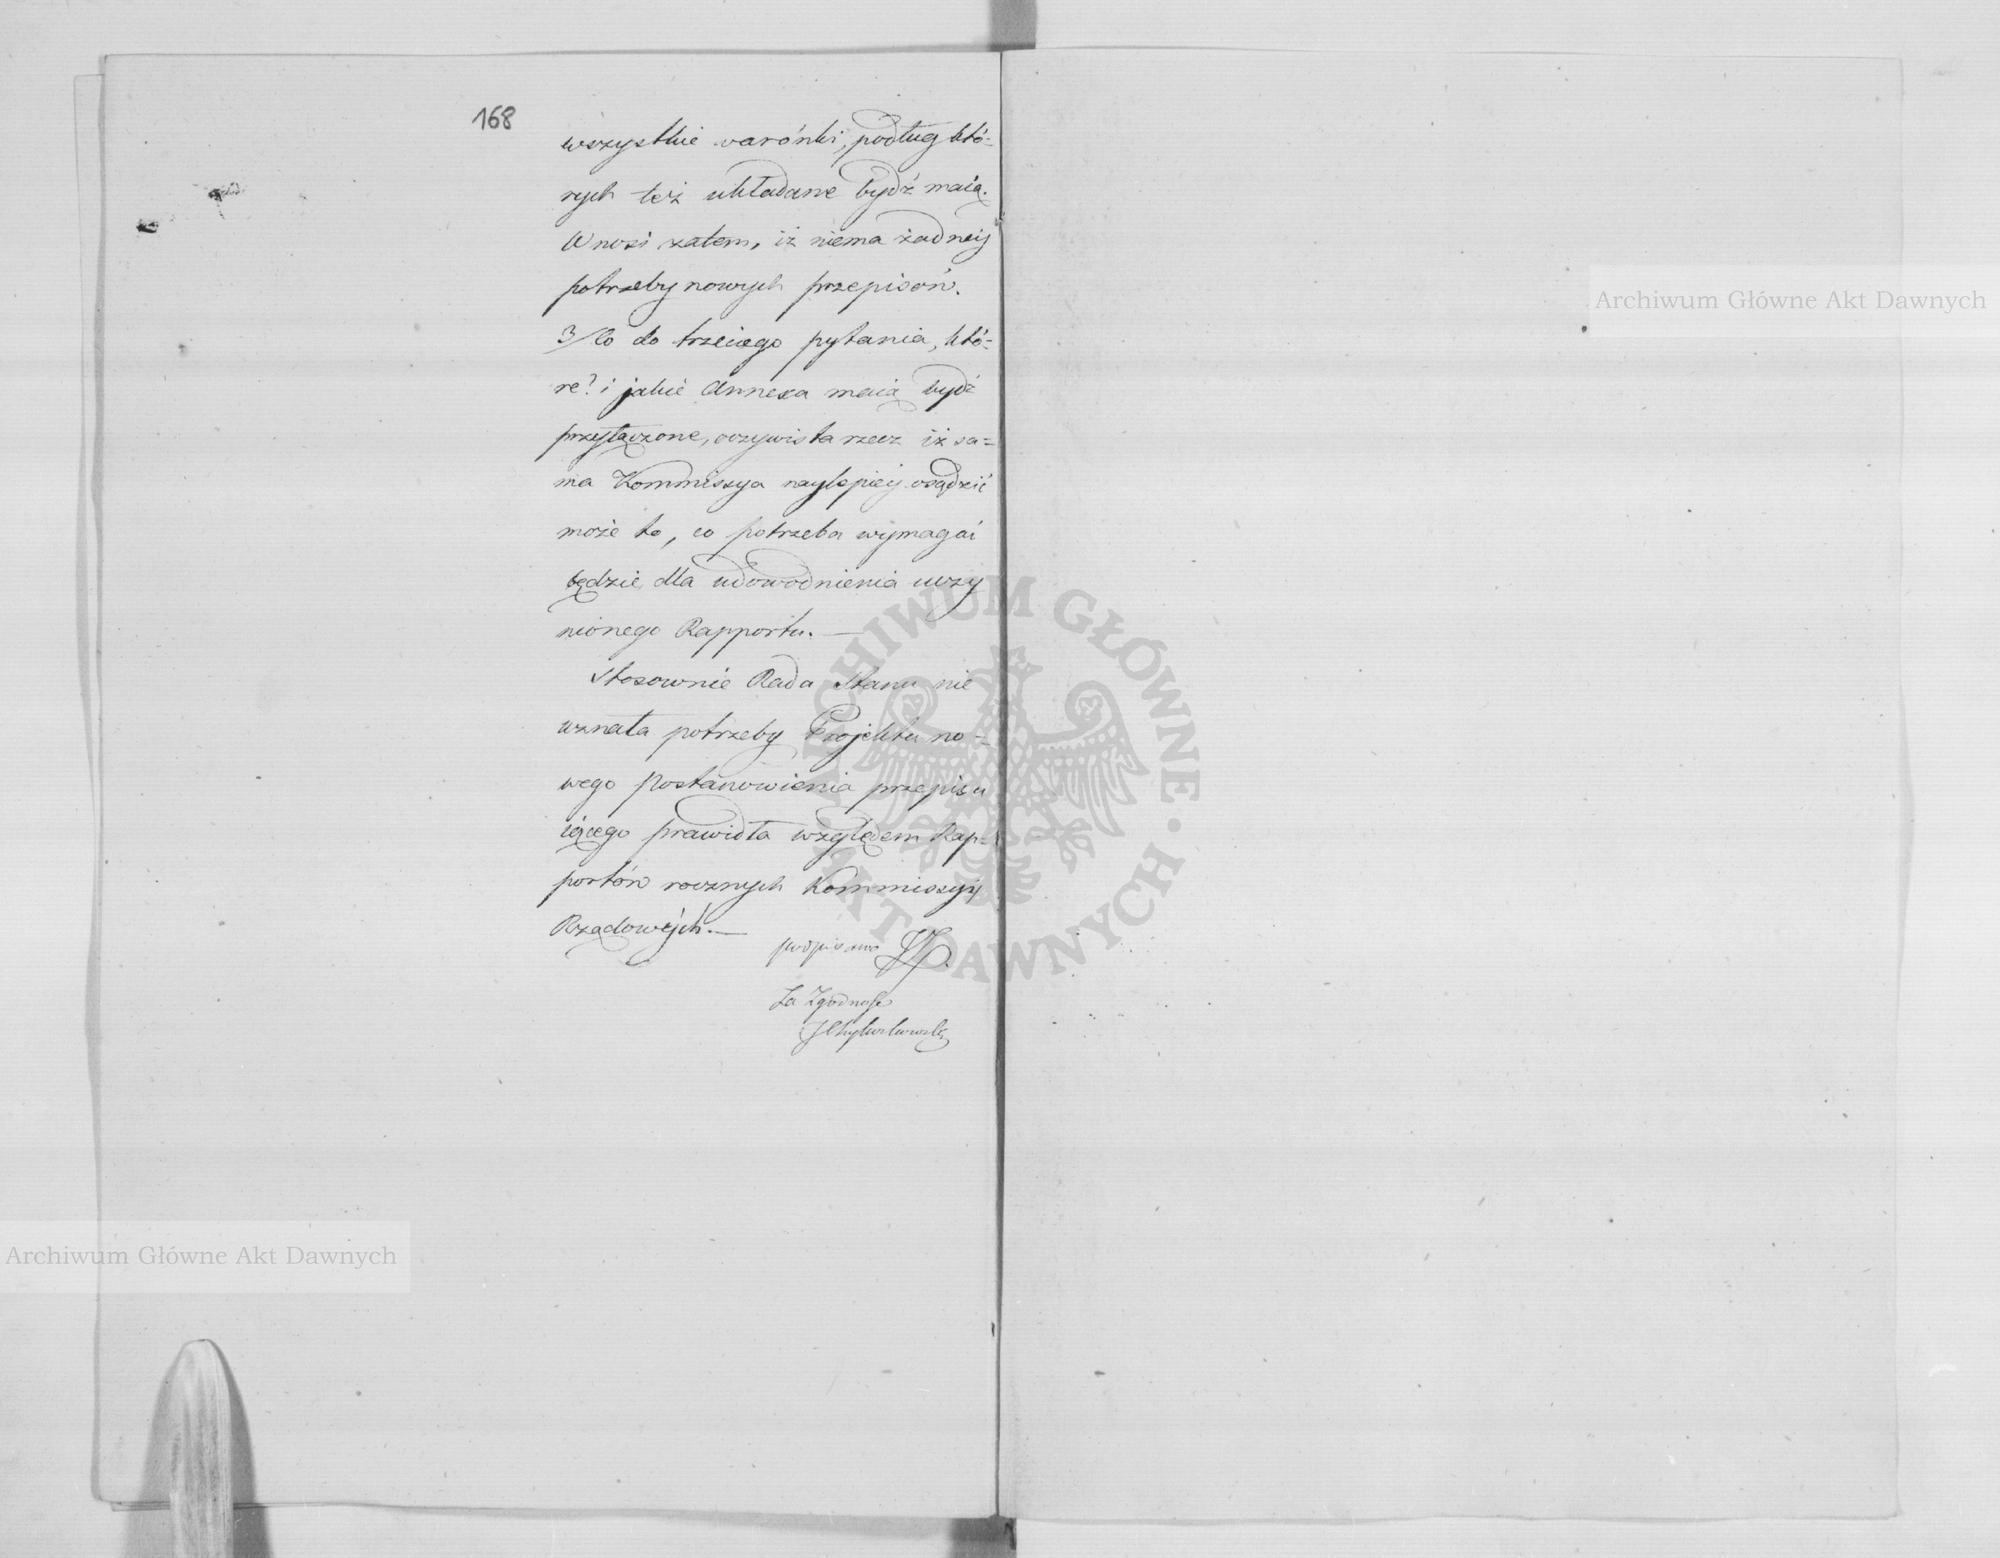 168
wszystkie warónki, podług któ-
rych też układane bydź maią.
Wnosi zatem, iż niema żadnéy
potrzeby nowych przepisów.
3/ Co do trzeciego pytania, któ-
re? i jakie Annexa maią bydź
przyłączone, oczywista rzecz iż sa-
ma Kommissya naylepiéy osądzić
może to, co potrzeba wymagać
będzie, dla udowodnienia uczy
nionego Rapportu. —
Stosownie Rada Stanu nie
uznała potrzeby Projektu no-
wego Postanowienia przepisu
iącego prawidła względem Rap-
portów rocznych Kommissyi
Rządowych. —
podpisano
Za Zgodność
Archiwum Główne Akt Dawnych
Archiwum Główne Akt Dawnych
ARCHIWUM GŁÓWNE AKT DAWNYCH